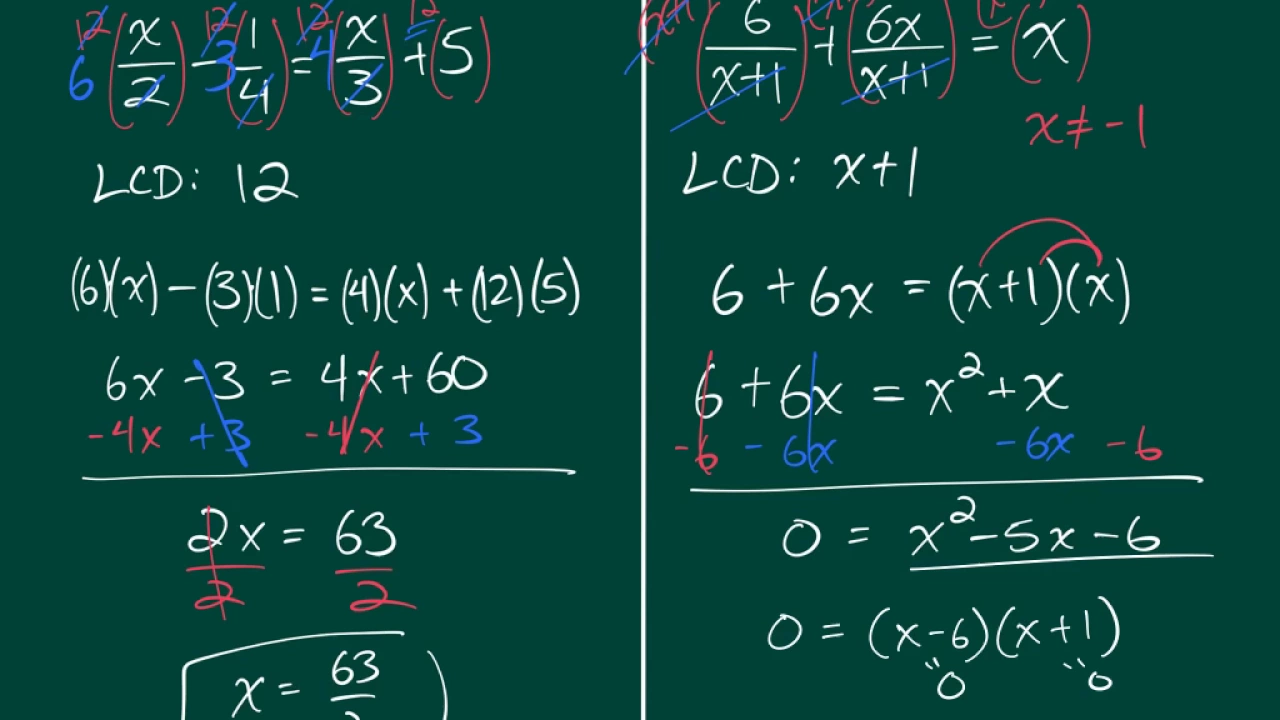 12(x/2) - 12(1/4) = 12(x/3) + 12(5)
6 3 4
LCD: 12
(6)(x) - (3)(1) = (4)(x) + (12)(5)
6x - 3 = 4x + 60
-4x + 3 -4x + 3
2x = 63
2 2
x = 63/2
(x+1)(6/(x+1)) + (6x/(x+1)) = (x)
x ≠ -1
LCD: x+1
6 + 6x = (x+1)(x)
6 + 6x = x² + x
-6 - 6x -6x -6
0 = x² - 5x - 6
0 = (x-6)(x+1)
"0 "0